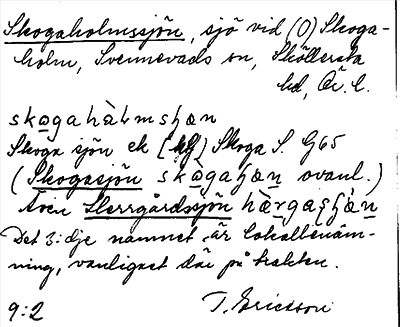 Skogaholmssjön, sjö vid (O) Skoga-
holm, Svennevads sn, Sköllersta
hd, Ör. l.
skogahàlmsʃɷn
Skoga sjön ek (hg) Skoga S. G65
(Skogasjön skògaʃɷn ovanl.)
Även Herrgårdssjön hæ̀rgaʂʃɷ̀n
Det 3:dje namnet är lokalbenäm-
ning, vanligast där på trakten.
9:2 T. Ericsson